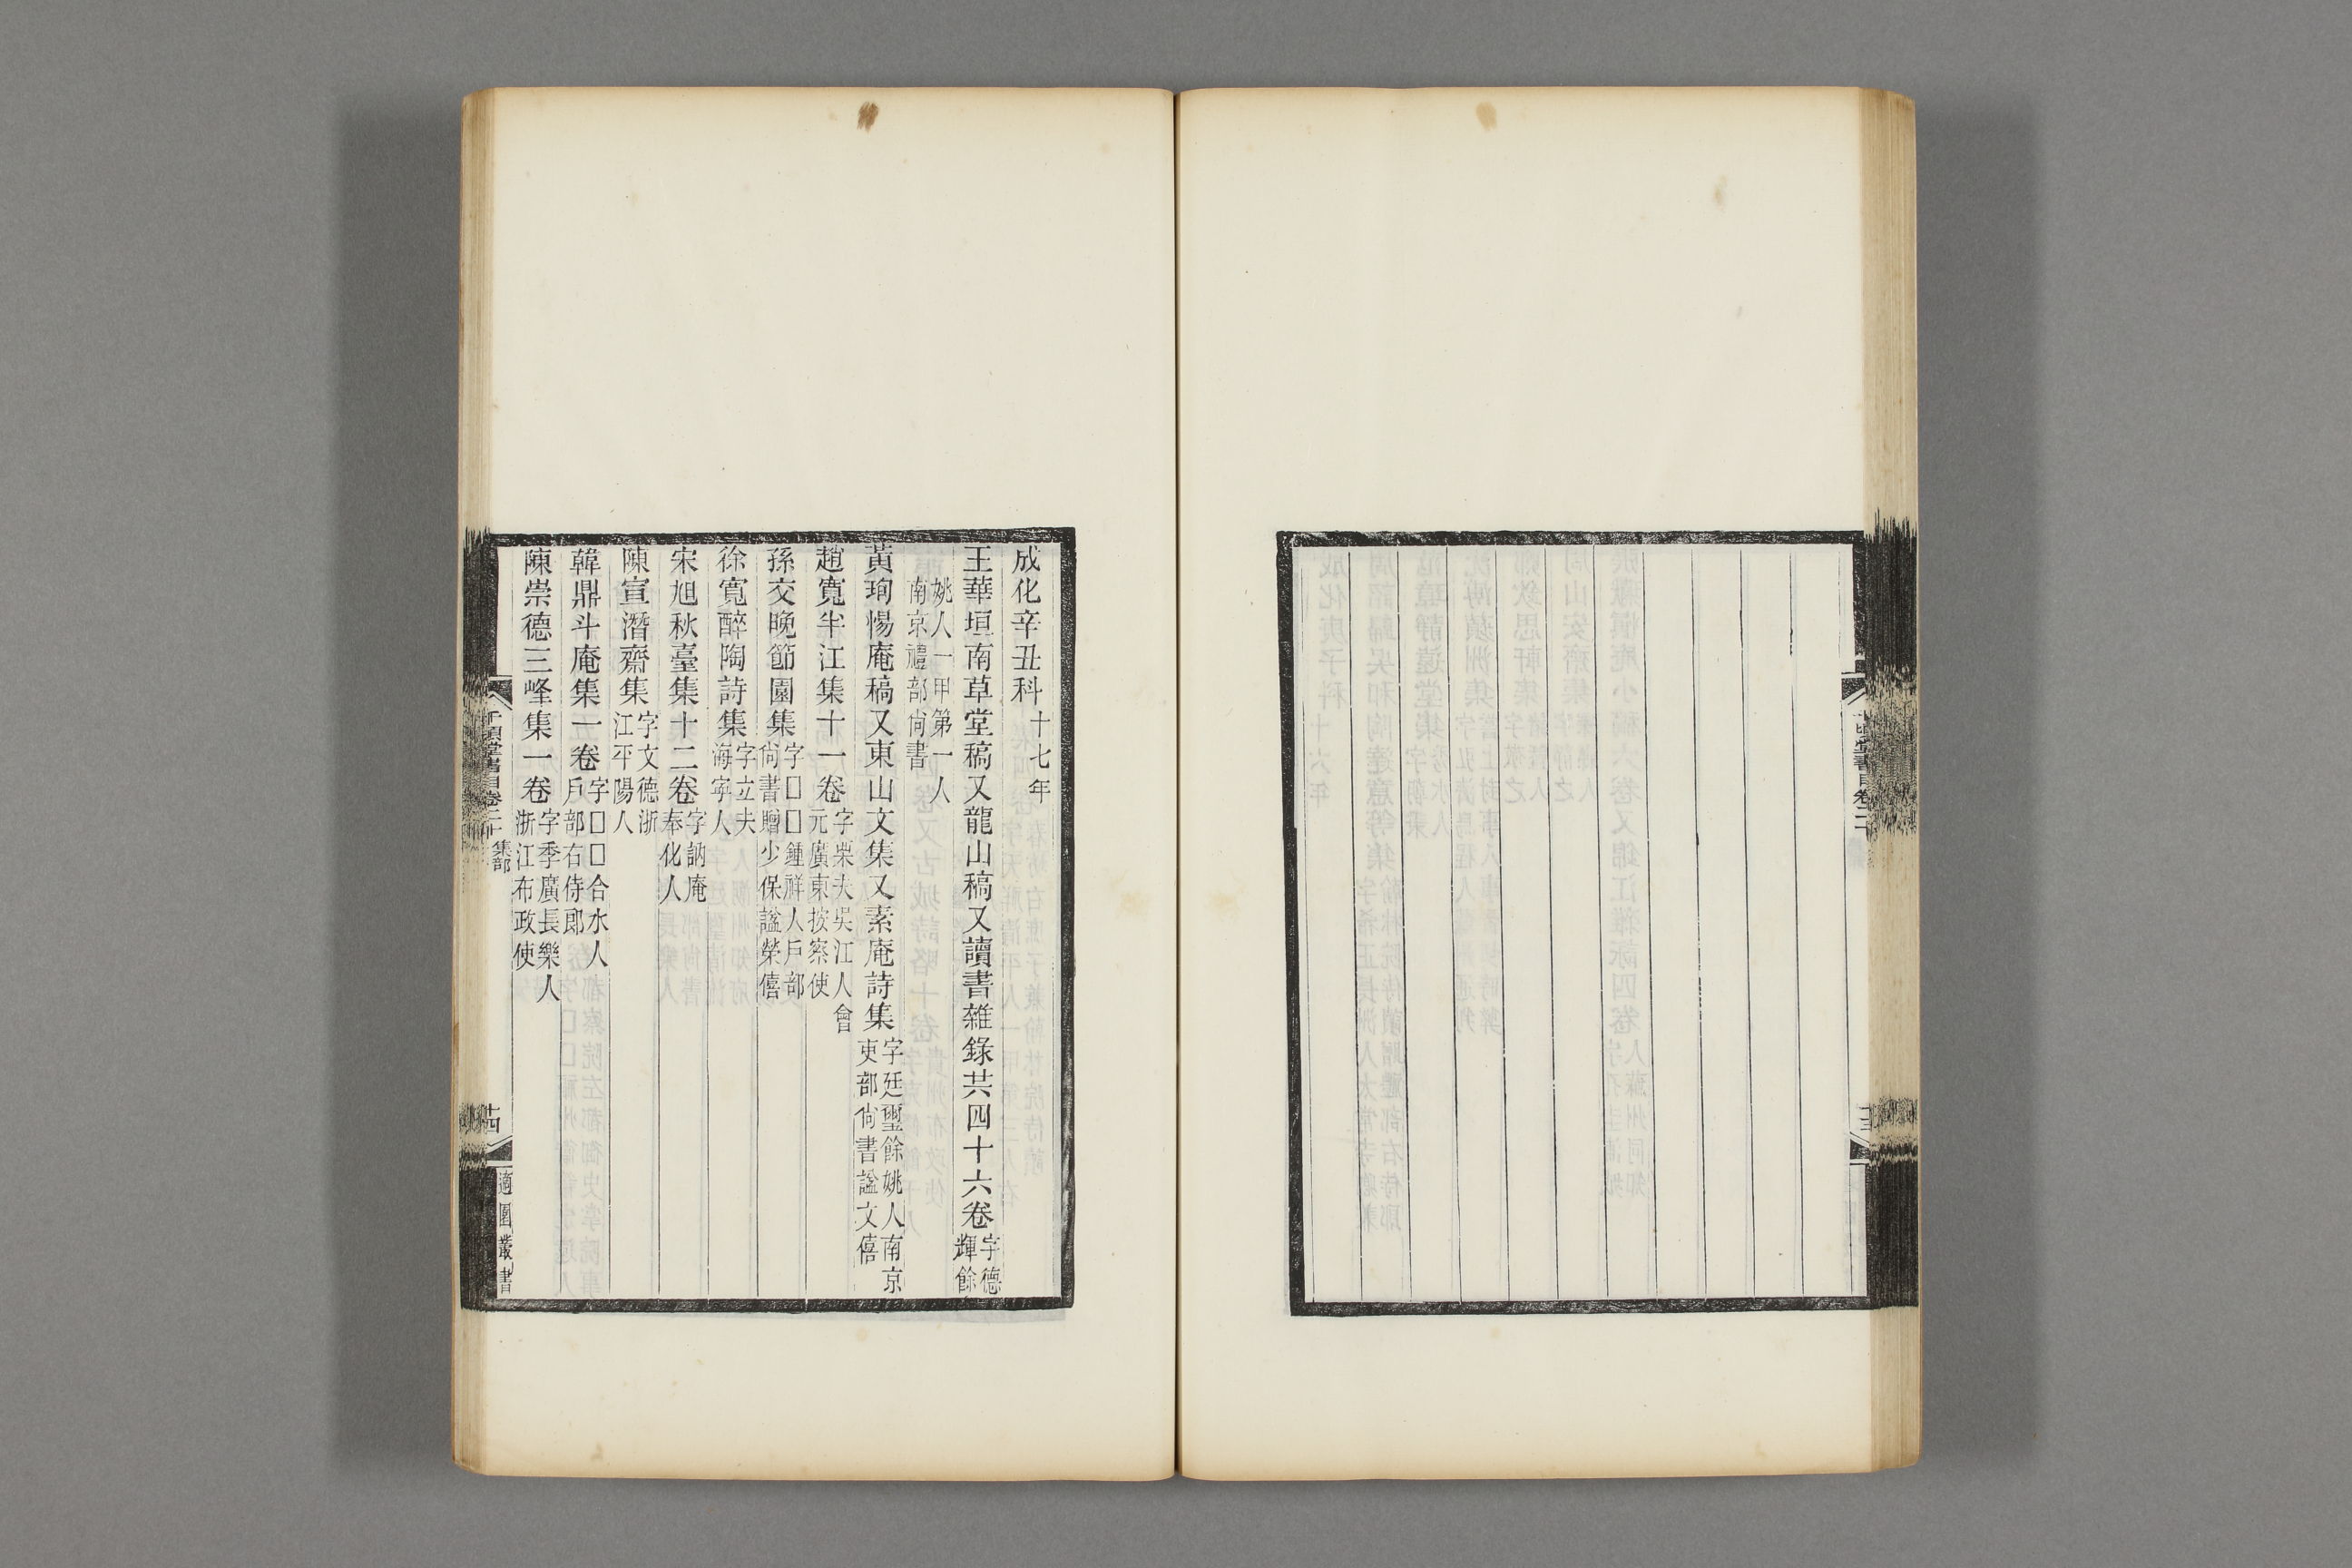 成化辛丑科十七年
王華垣南草堂稿又龍山稿又讀書雜錄共四十六卷字德輝餘
姚人一甲第一人南京禮部尙書
黃珣惕庵稿又東山文集又素庵詩集字廷璽餘姚人南京吏部尙書諡文僖
趙寬半江集十一卷字栗夫吳江人會元廣東按察使
孫交晚節園集字□□鍾祥人戶部尙書贈少保諡榮僖
徐寬醉陶詩集字立夫海寧人
宋旭秋臺集十二卷字訥庵奉化人
陳宣潛齋集字文德浙江平陽人
韓鼎斗庵集一卷字□□合水人戶部右侍郎
陳崇德三峰集一卷字季廣長樂人浙江布政使
千頃堂書目卷二十 集部
十四
適園叢書